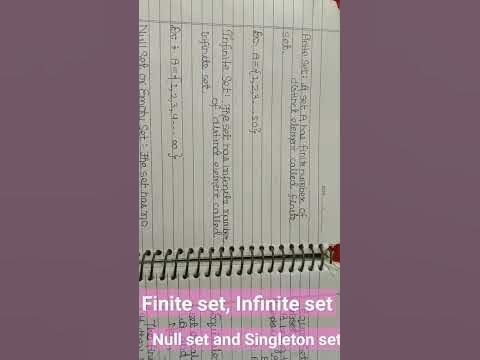 Finite Set: A set A has finite number of
distinct element called finite
set.
Ex: A={1,2,3....50}
Infinite Set: The set has infinite number
of distinct element called
infinite set.
Ex: A={1,2,3,4....∞}
Null Set or Empty Set: The set has no
Finite set, Infinite set
Null set and Singleton set